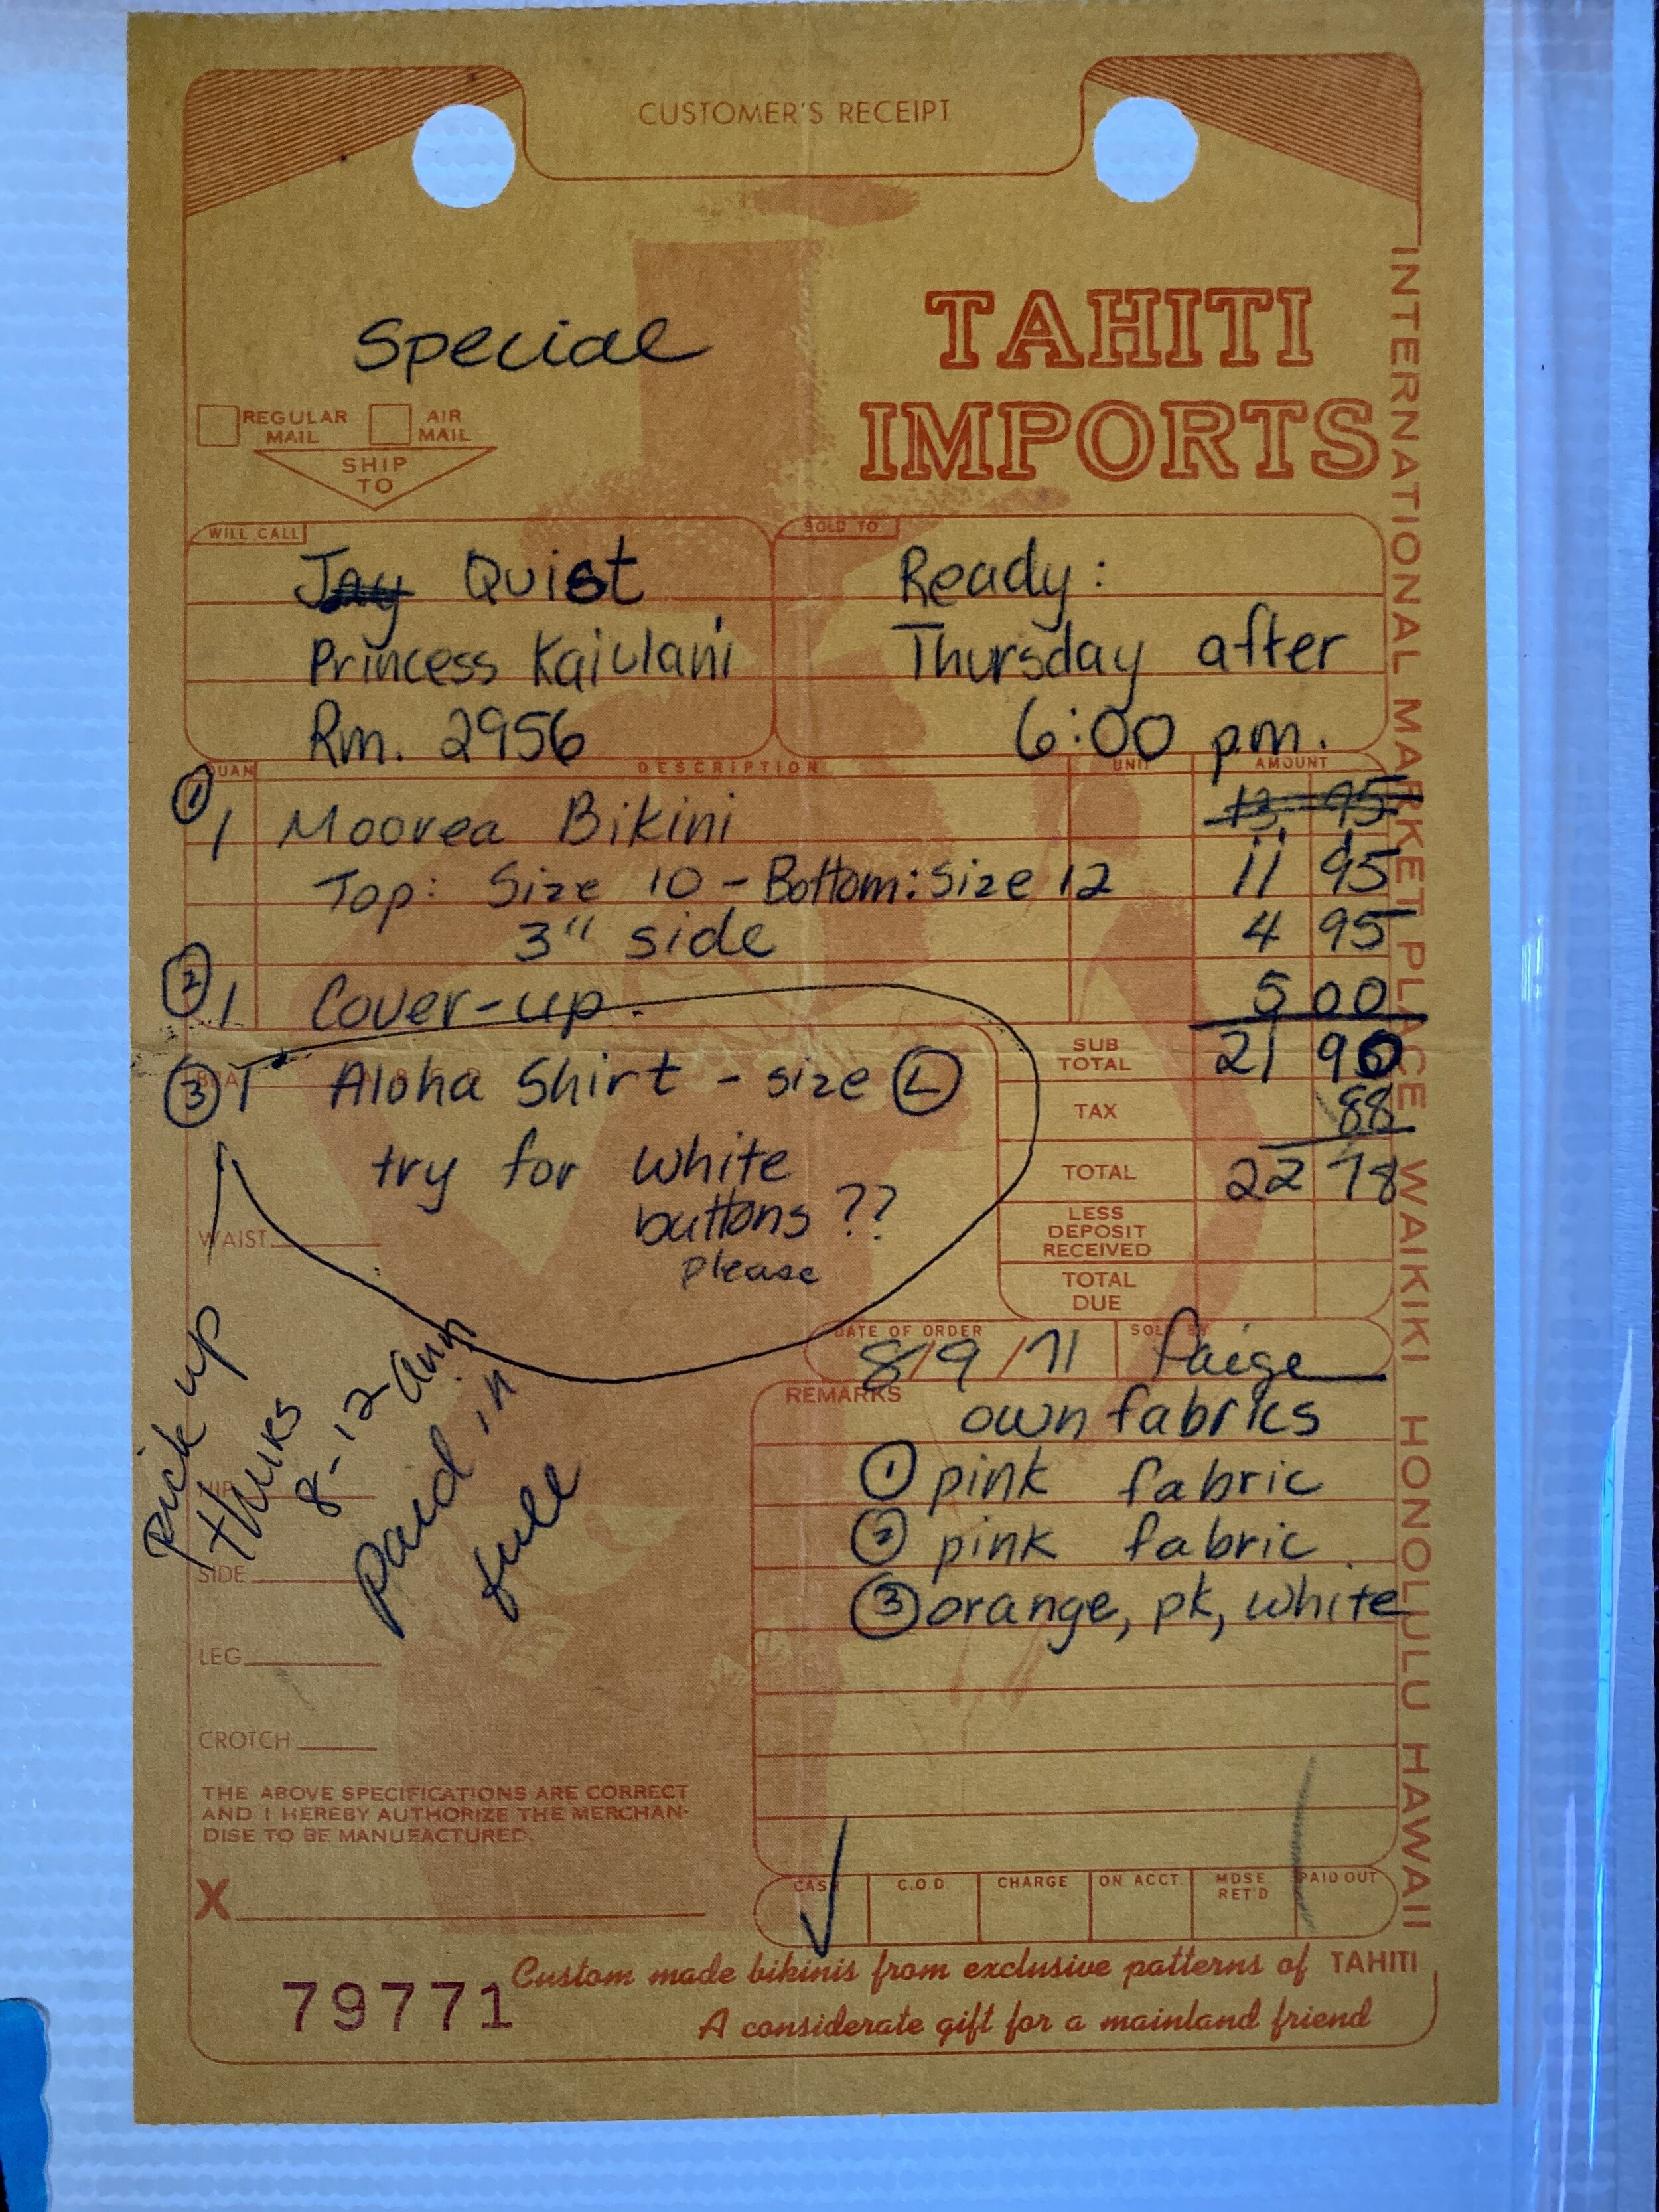 CUSTOMER'S RECEIPT
Special
TAHITI
IMPORTS
INTERNATIONAL MARKET PLACE WAIKIKI HONOLULU HAWAII
REGULAR MAIL
AIR MAIL
SHIP TO
WILL CALL
Jay Quist
Princess Kaiulani
Rm. 2956
SOLD TO
Ready:
Thursday after
6:00 p.m.
QUAN DESCRIPTION UNIT AMOUNT
① 13.95
1 Moorea Bikini
Top: Size 10 - Bottom: size 12 11 95
3" side 4 95
② 1 Cover-up. 5 00
③ 1 Aloha Shirt - size L
try for white
buttons ??
please
SUB TOTAL 21 90
TAX 88
TOTAL 22 78
LESS DEPOSIT RECEIVED
TOTAL DUE
BRA
WAIST
HIP
SIDE
LEG
CROTCH
Pick up
8-12-
Paid in
full
DATE OF ORDER
8/9/71
SOLD BY
Paige
REMARKS
own fabrics
① pink fabric
② pink fabric
③ orange, pk, white
THE ABOVE SPECIFICATIONS ARE CORRECT
AND I HEREBY AUTHORIZE THE MERCHAN-
DISE TO BE MANUFACTURED.
X
CASH C.O.D. CHARGE ON ACCT. MDSE RET'D PAID OUT
79771
Custom made bikinis from exclusive patterns of TAHITI
A considerate gift for a mainland friend